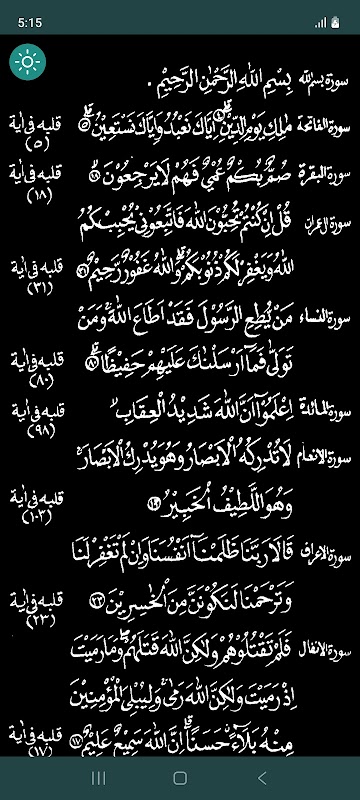 5:15
سورة بسم الله بِسْمِ اللّٰهِ الرَّحْمٰنِ الرَّحِيْمِ .
سورة الفاتحة مٰلِكِ يَوْمِ الدِّيْنِۗ اِيَّاكَ نَعْبُدُ وَاِيَّاكَ نَسْتَعِيْنُۗ ۵ قلبه فى اية (۵)
سورة البقرة صُمٌّۢ بُكْمٌ عُمْيٌ فَهُمْ لَا يَرْجِعُوْنَۙ ۱۸ قلبه فى اية (۱۸)
سورة ال عمران قُلْ اِنْ كُنْتُمْ تُحِبُّوْنَ اللّٰهَ فَاتَّبِعُوْنِيْ يُحْبِبْكُمُ
اللّٰهُ وَيَغْفِرْ لَكُمْ ذُنُوْبَكُمْۗ وَاللّٰهُ غَفُوْرٌ رَّحِيْمٌ ۳۱ قلبه فى اية (۳۱)
سورة النساء مَنْ يُّطِعِ الرَّسُوْلَ فَقَدْ اَطَاعَ اللّٰهَۚ وَمَنْ
تَوَلّٰى فَمَآ اَرْسَلْنٰكَ عَلَيْهِمْ حَفِيْظًاۗ ۸۰ قلبه فى اية (۸۰)
سورة المائدة اِعْلَمُوْٓا اَنَّ اللّٰهَ شَدِيْدُ الْعِقَابِۙ قلبه فى اية (۹۸)
سورة الانعام لَا تُدْرِكُهُ الْاَبْصَارُ وَهُوَ يُدْرِكُ الْاَبْصَارَۚ
وَهُوَ اللَّطِيْفُ الْخَبِيْرُ ۱۰۳ قلبه فى اية (۱۰۳)
سورة الاعراف قَالَا رَبَّنَا ظَلَمْنَآ اَنْفُسَنَا وَاِنْ لَّمْ تَغْفِرْ لَنَا
وَتَرْحَمْنَا لَنَكُوْنَنَّ مِنَ الْخٰسِرِيْنَ ۲۳ قلبه فى اية (۲۳)
سورة الانفال فَلَمْ تَقْتُلُوْهُمْ وَلٰكِنَّ اللّٰهَ قَتَلَهُمْۖ وَمَا رَمَيْتَ
اِذْ رَمَيْتَ وَلٰكِنَّ اللّٰهَ رَمٰىۚ وَلِيُبْلِيَ الْمُؤْمِنِيْنَ
مِنْهُ بَلَاۤءً حَسَنًاۗ اِنَّ اللّٰهَ سَمِيْعٌ عَلِيْمٌ ۱۷ قلبه فى اية (۱۷)